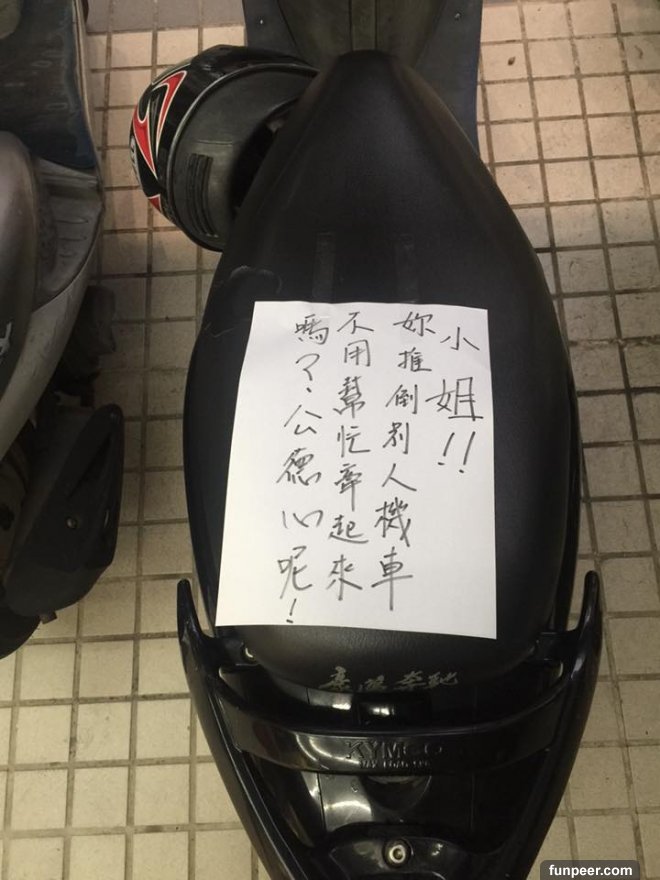 小姐!!
妳推倒別人機車
不用幫忙牽起來
嗎?公德心呢!
KYMCO
funpeer.com